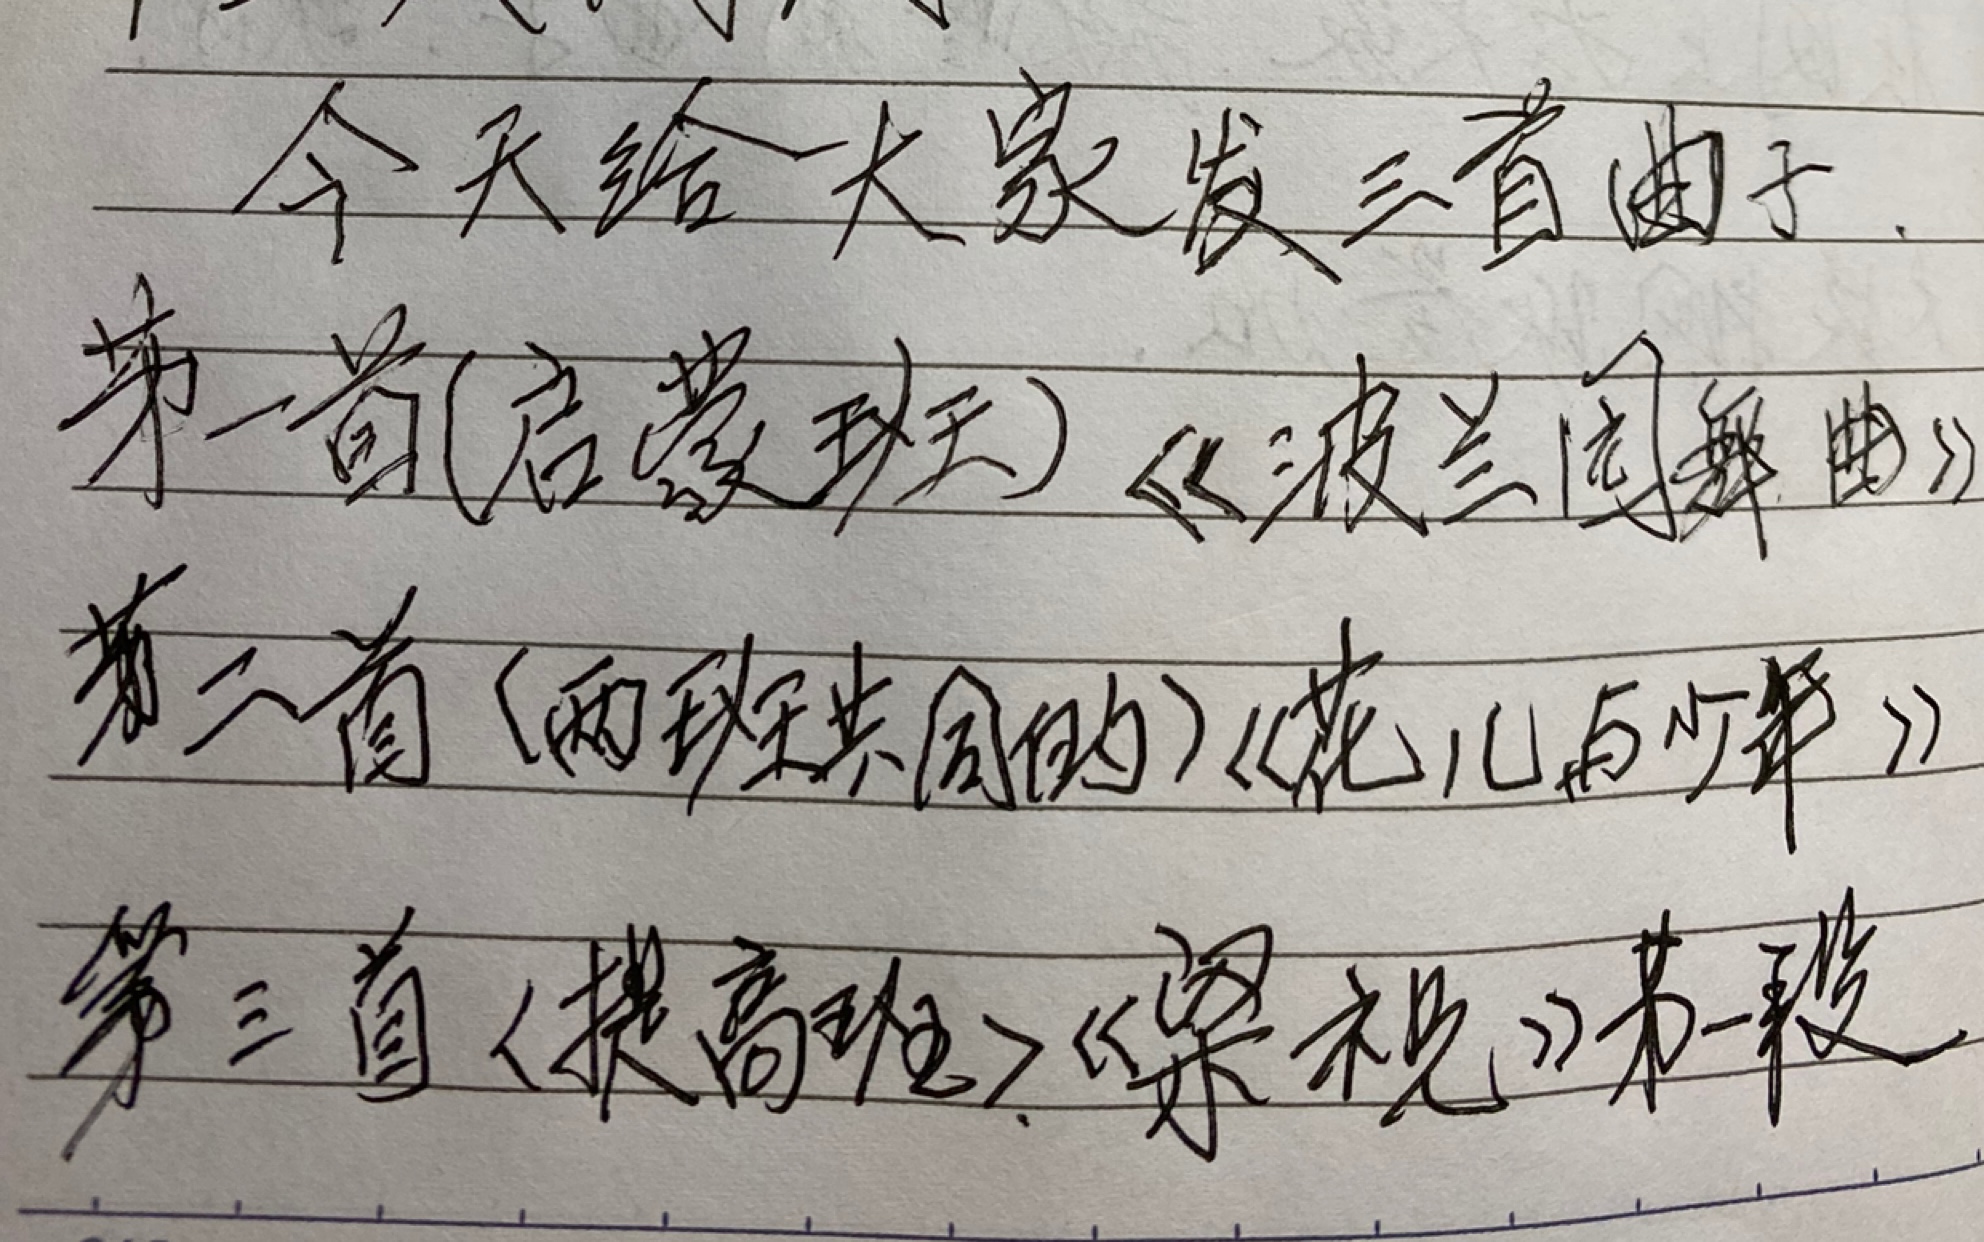 今天给大家发三首曲子.
第一首(启蒙班)《波兰圆舞曲》
第二首(两班共同的)《花儿与少年》
第三首<提高班>.《梁祝》第一段